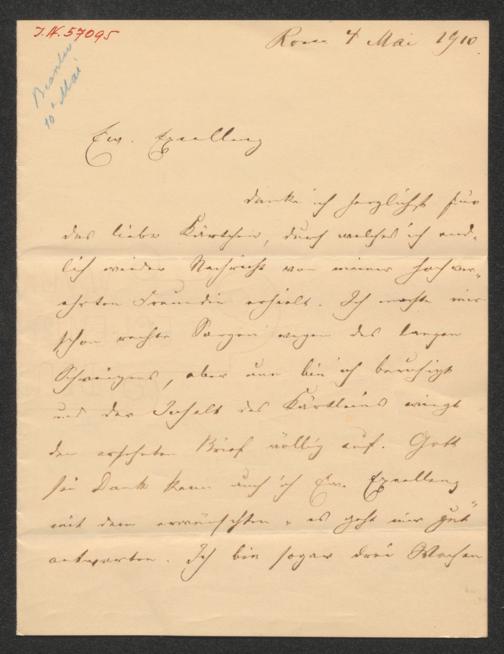 J.N. 57095
Rom 4 Mai 1910.
Beantw
10 Mai
Ew. Exzellenz
danke ich herzlichst für
das liebe Kärtchen, durch welches ich end-
lich wieder Nachricht von meiner hochver-
ehrten Freundin erhielt. Ich machte mir
schon rechte Sorgen wegen des langen
Schweigens, aber nun bin ich beruhigt
und der Inhalt des Kärtleins wiegt
den ersehnten Brief völlig auf. Gott
sei Dank kann auch ich Ew. Exzellenz
mit dem erwünschten „es geht mir gut"
antworten. Ich bin sogar drei Wochen